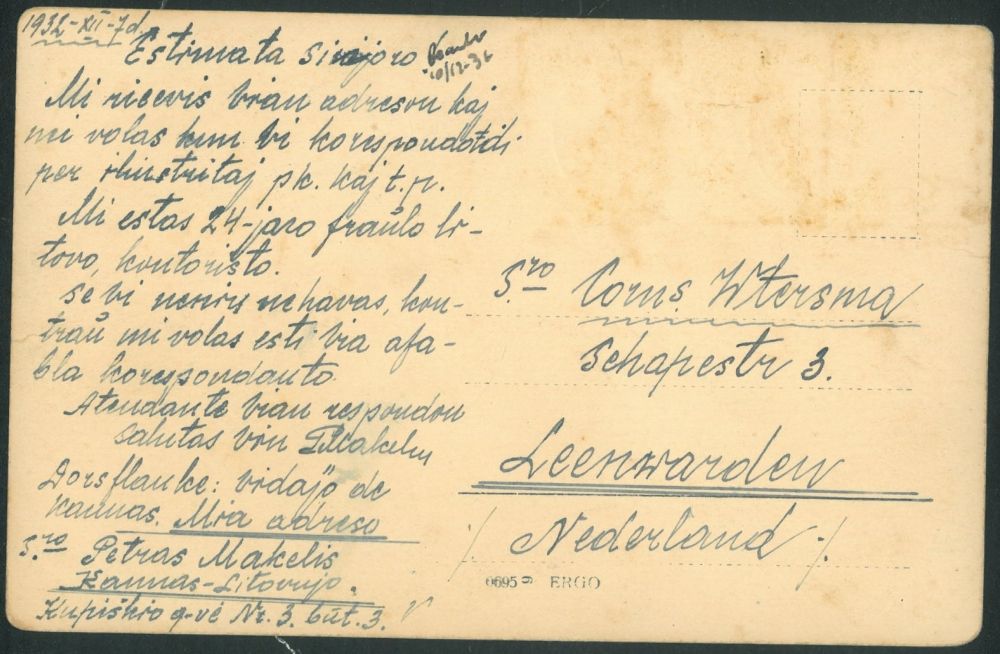 1932-XII-7d.
Estimata Sinjoro
10/12-32
Mi ricevis Vian adreson kaj
mi volas kun Vi korespondadi
per ilustritaj pk. kaj t.p.
Mi estas 24-jaro fraŭlo li-
tovo, kontoristo.
Se Vi nenion nehavas, kon-
traŭ mi volas esti Via afa-
bla korespondanto.
Atendante Vian respondon
salutas Vin PMakelis
Dorsflanke: vidajo de
Kaunas. Mia adreso
S.ro Petras Makelis
Kaunas-Litovujo.
Kupiškio g-vė Nr. 3. but. 3.
S.ro Corns. Wtersma
Schapestr 3.
Leenwarden
Nederland
0695 9 ERGO